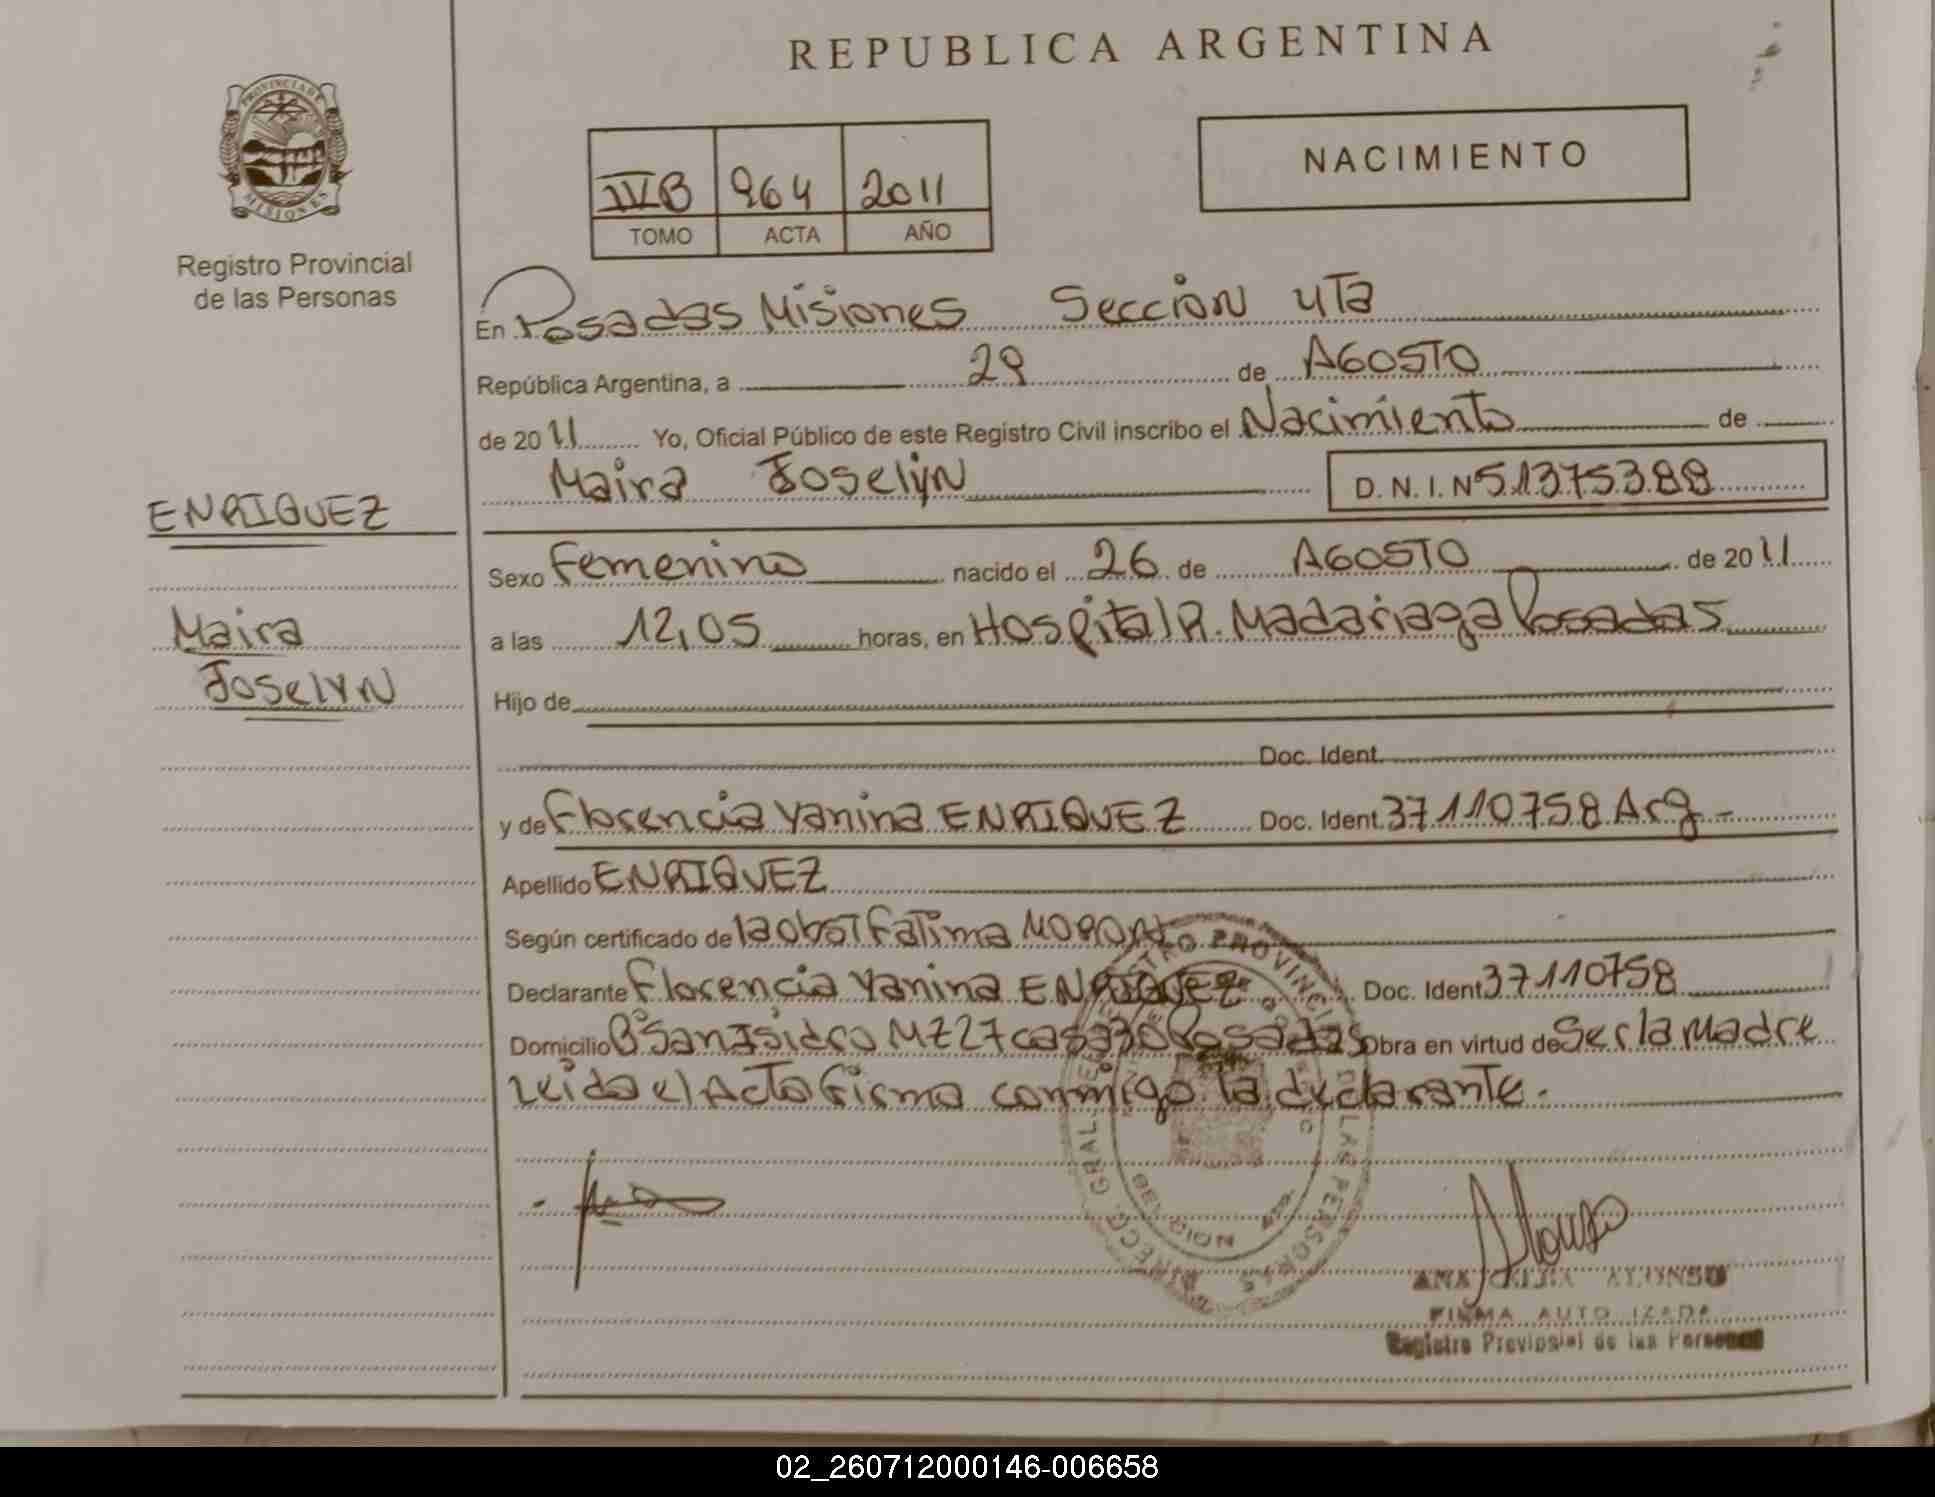 REPUBLICA ARGENTINA
PROVINCIA DE
MISIONES
Registro Provincial
de las Personas
NACIMIENTO
IVB 964 2011
TOMO ACTA AÑO
En Posadas Misiones Sección 4Ta
República Argentina, a 29 de AGOSTO
de 2011 Yo, Oficial Público de este Registro Civil inscribo el Nacimiento de
Maira Joselyn D.N.I.Nº 51375388
ENRIQUEZ
Maira
Joselyn
Sexo Femenino nacido el 26 de AGOSTO de 2011
a las 12,05 horas, en Hospital R. Madariaga Posadas
Hijo de
Doc. Ident.
y de Florencia Yanina ENRIQUEZ Doc. Ident. 37110758 Arg -
Apellido ENRIQUEZ
Según certificado de la obst Fatima
Declarante Florencia Yanina ENRIQUEZ Doc. Ident 37110758
Domicilio Bº San Isidro MZ 27 casa 30 Posadas Obra en virtud de Ser la Madre
Leida el Acta firma conmigo la declarante.
Alonso
ANA CELIA ALONSO
FIRMA AUTORIZADA
Registro Provincial de las Personas
02_260712000146-006658